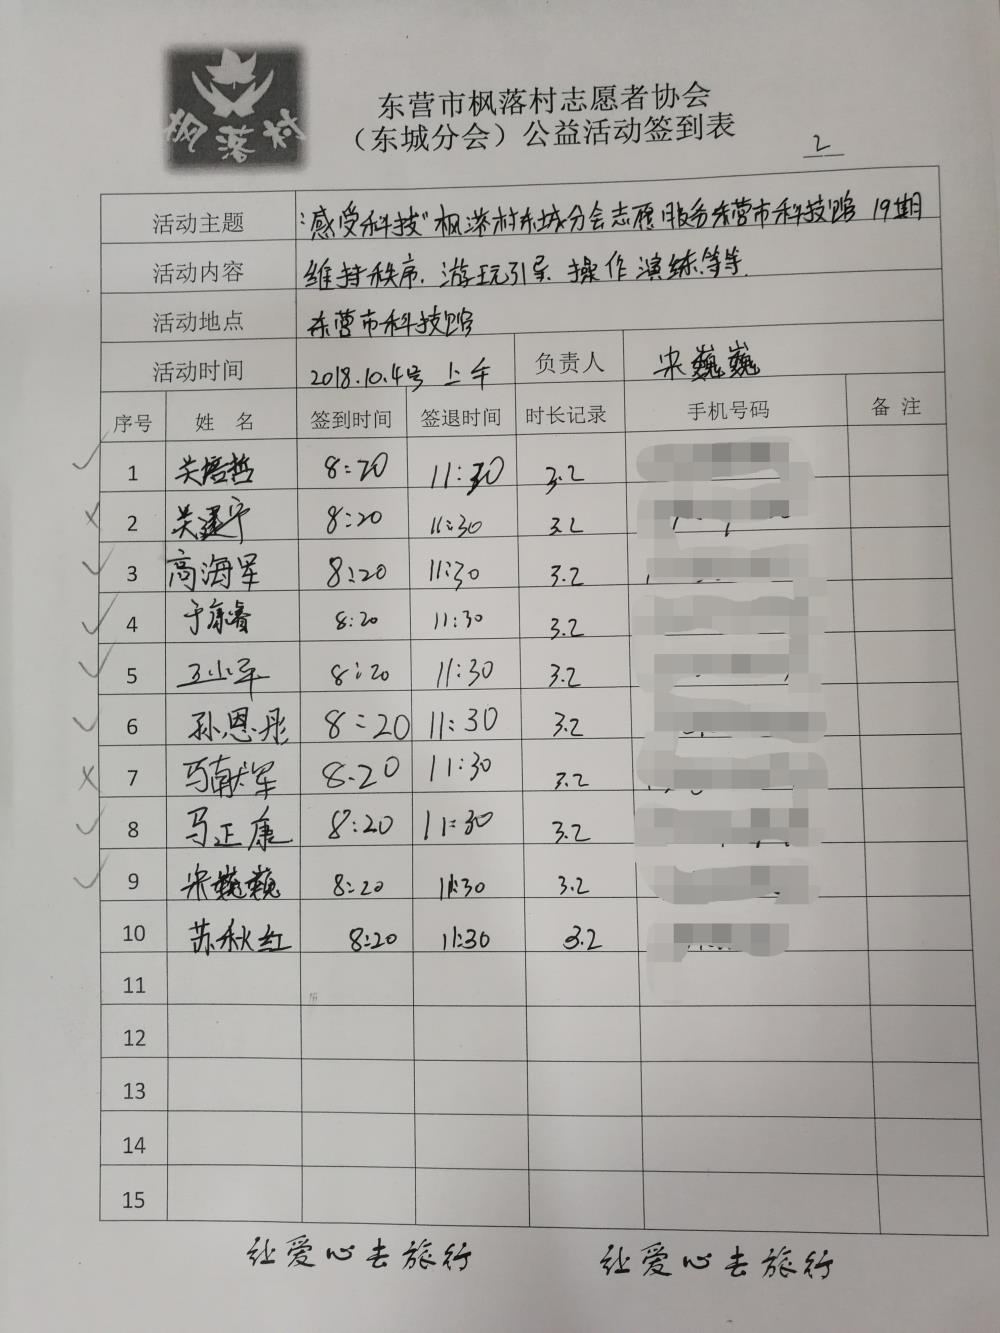 枫落村
东营市枫落村志愿者协会
（东城分会）公益活动签到表
2
活动主题 "感受科技"枫落村东城分会志愿服务东营市科技馆 19期
活动内容 维持秩序、游玩引导、操作演练等等.
活动地点 东营市科技馆
活动时间 2018.10.4号 上午 负责人 宋巍巍
序号 姓 名 签到时间 签退时间 时长记录 手机号码 备 注
1 关培哲 8:20 11:30 3.2
2 关建宁 8:20 11:30 3.2
3 高海军 8:20 11:30 3.2
4 于康睿 8:20 11:30 3.2
5 王小军 8:20 11:30 3.2
6 孙恩彤 8:20 11:30 3.2
7 马献军 8.20 11:30 3.2
8 马正康 8:20 11:30 3.2
9 宋巍巍 8:20 11:30 3.2
10 苏秋红 8:20 11:30 3.2
11
12
13
14
15
让爱心去旅行 让爱心去旅行